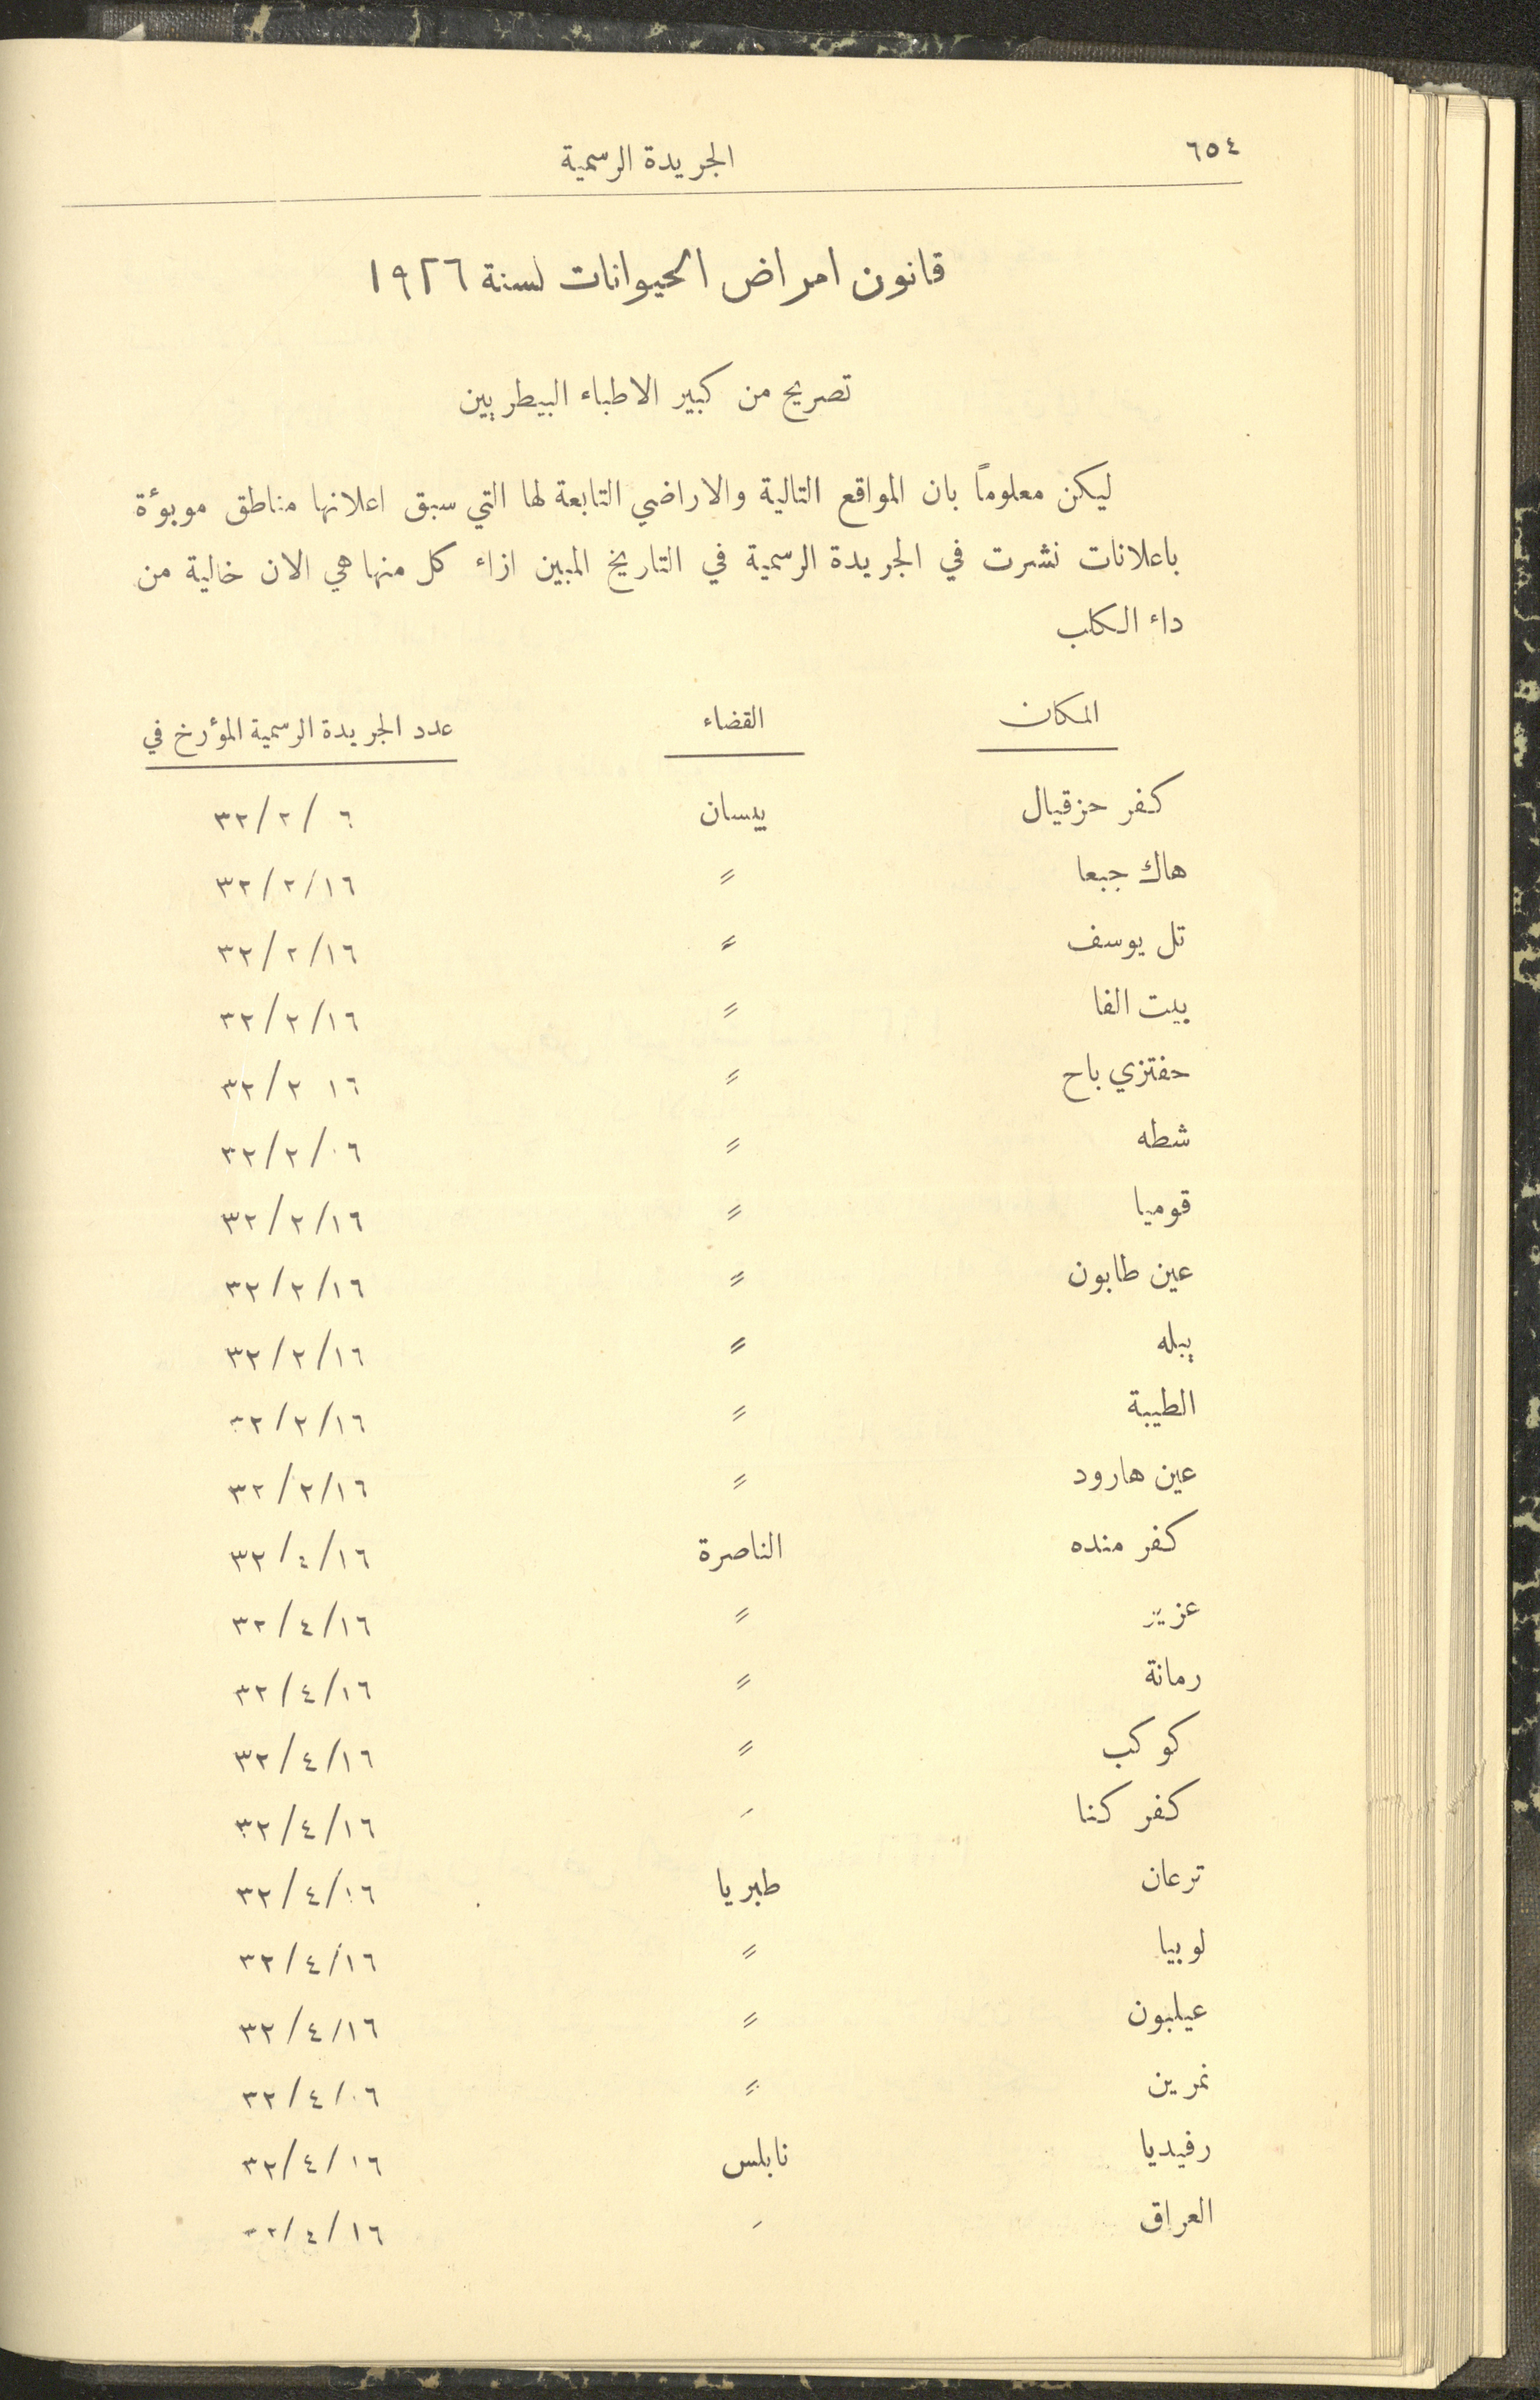 ٦٥٤
الجريدة الرسمية
قانون امراض الحيوانات لسنة ١٩٢٦
تصريح من كبير الاطباء البيطريين
ليكن معلوماً بان المواقع التالية والاراضي التابعة لها التي سبق اعلانها مناطق موبوٴة
باعلانات نشرت في الجريدة الرسمية في التاريخ المبين ازاء كل منها هي الان خالية من
داء الكلب
المكان القضاء عدد الجريدة الرسمية المؤرخ في
كفر حزقيال بيسان ٦ /٢/٣٢
هاك جبعا 〃 ١٦/٢/٣٢
تل يوسف 〃 ١٦/٢/٣٢
بيت الفا 〃 ١٦/٢/٣٢
حفتزي باح 〃 ١٦ ٢/٣٢
شطه 〃 ٠٦/٢/٣٢
قوميا 〃 ١٦/٢/٣٢
عين طابون 〃 ١٦/٢/٣٢
يبله 〃 ١٦/٢/٣٢
الطيبة 〃 ١٦/٢/٣٢
عين هارود 〃 ١٦/٢/٣٢
كفر منده الناصرة ١٦/٤/٣٢
عزير 〃 ١٦/٤/٣٢
رمانة 〃 ١٦/٤/٣٢
كوكب 〃 ١٦/٤/٣٢
كفر كنا 〃 ١٦/٤/٣٢
ترعان طبريا ١٦/٤/٣٢
لوبيا 〃 ١٦/٤/٣٢
عيلبون 〃 ١٦/٤/٣٢
نمرين 〃 ٠٦/٤/٣٢
رفيديا نابلس ١٦/٤/٣٢
العراق 〃 ١٦/٤/٣٢